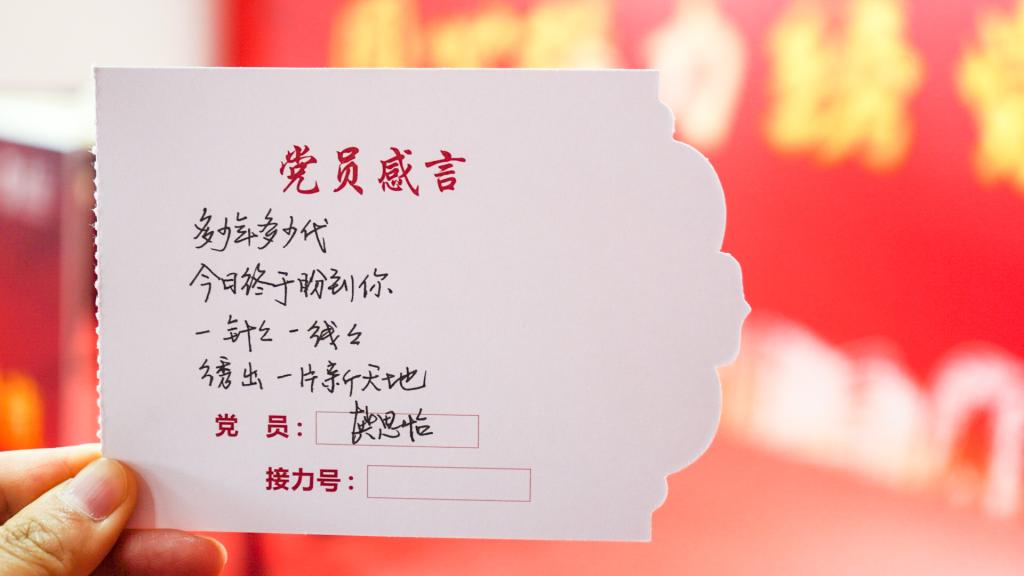 党员感言
多少年多少代
今日终于盼到你
一针针一线线
绣出一片新天地
党 员：樊思怡
接力号：